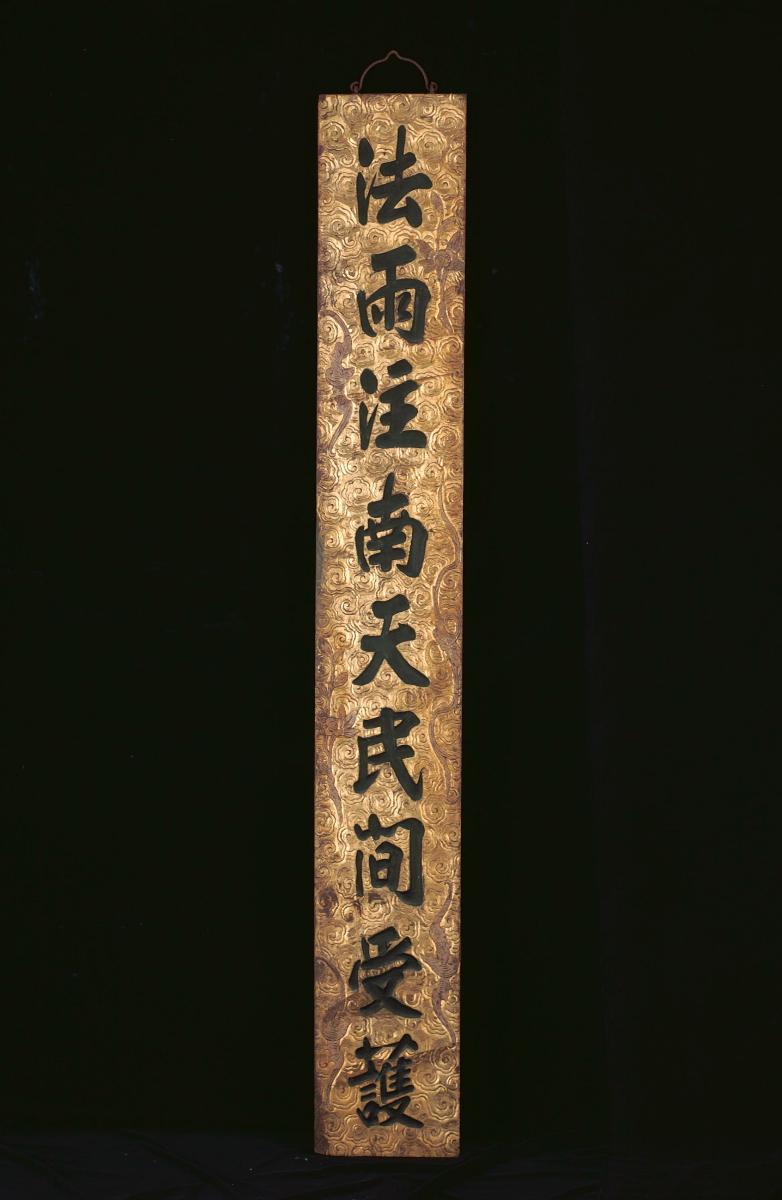 法雨注南天民間受護